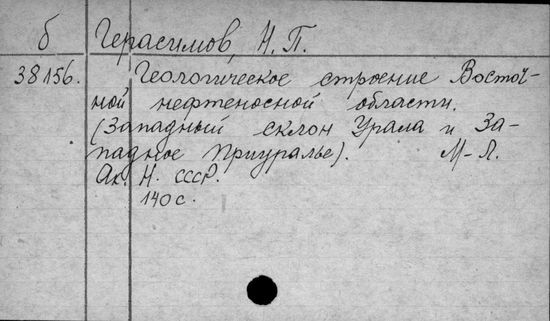 б Герасимов, Н. П.
38156. Геологическое строение Восточ-
ной нефтеносной области.
(Западный склон Урала и За-
падное Приуралье). М-Л.
Ак. Н. СССР.
140 с.